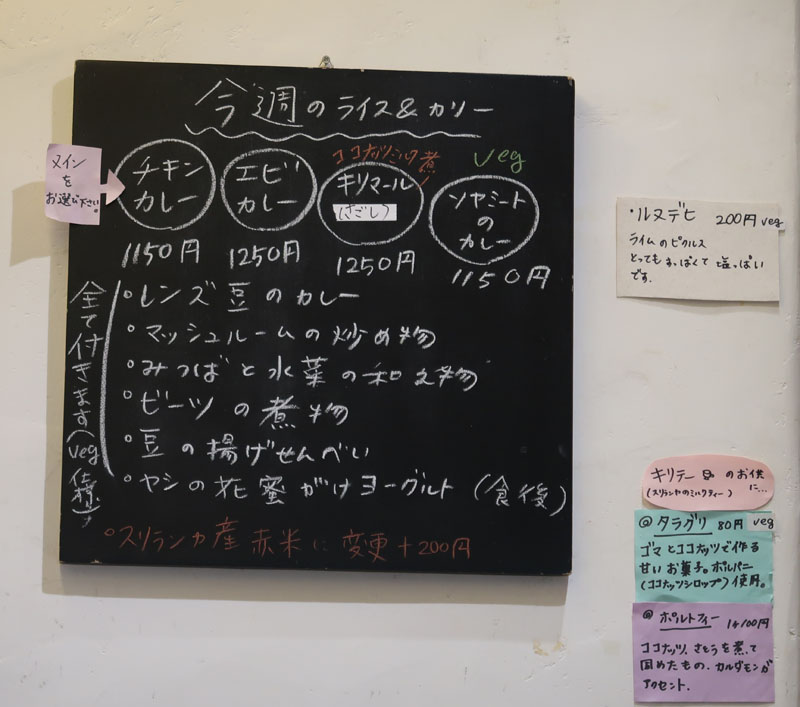 今週のライス&カリー
メイン
を
お選び下さい。
チキン
カレー
1150円
エビ
カレー
1250円
ココナッツミルク煮
キリマール
(さごし)
1250円
veg
ソヤミート
の
カレー
1150円
全て付きます(veg仕様)
・レンズ豆のカレー
・マッシュルームの炒め物
・みつばと水菜の和え物
・ビーツの煮物
・豆の揚げせんべい
・ヤシの花蜜がけヨーグルト(食後)
・スリランカ産赤米に変更+200円
・ルヌデヒ 200円 veg
ライムのピクルス
とってもすっぱくて塩っぱい
です.
キリテー のお供
(スリランカのミルクティー) に...
@タラグリ 80円 veg
ゴマとココナッツで作る
甘いお菓子。ポルパニ
(ココナッツシロップ)使用。
@ポルトフィー 1ヶ100円
ココナッツ、さとうを煮て
固めたもの. カルダモンが
アクセント.